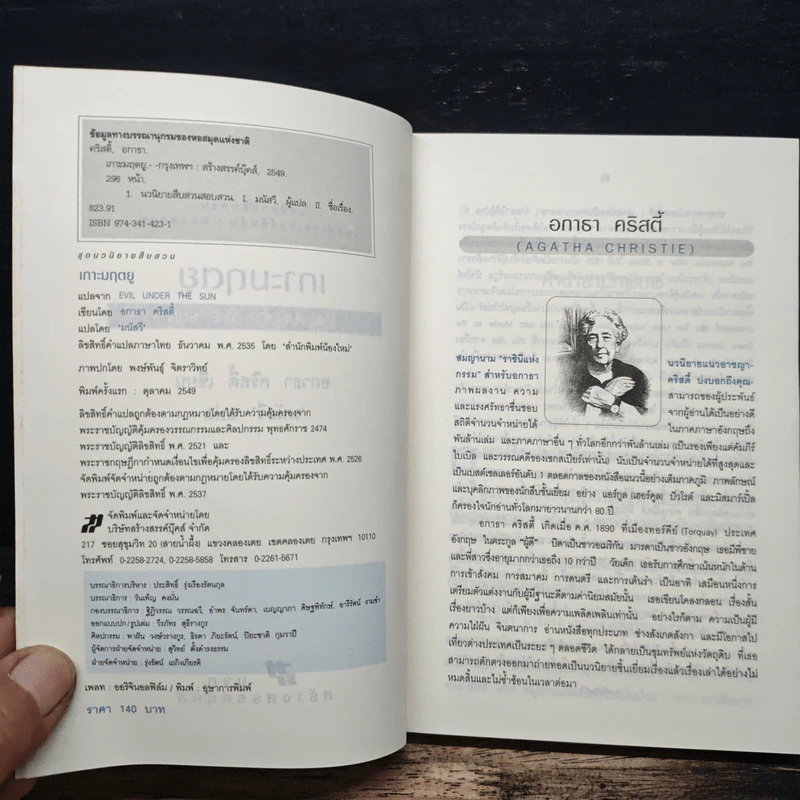 ข้อมูลทางบรรณานุกรมของหอสมุดแห่งชาติ
คริสตี้, อกาธา.
เกาะมฤตยู.- -กรุงเทพฯ : สร้างสรรค์บุ๊คส์, 2549.
296 หน้า.
1. นวนิยายสืบสวนสอบสวน. I. มนัสวี, ผู้แปล. II. ชื่อเรื่อง.
823.91
ISBN 974-341-423-1
ชุดนวนิยายสืบสวน
เกาะมฤตยู
แปลจาก EVIL UNDER THE SUN
เขียนโดย อกาธา คริสตี้
แปลโดย "มนัสวี"
ลิขสิทธิ์คำแปลภาษาไทย ธันวาคม พ.ศ. 2535 โดย "สำนักพิมพ์น้องใหม่"
ภาพปกโดย พงษ์พันธุ์ จิตราวิทย์
พิมพ์ครั้งแรก : ตุลาคม 2549
ลิขสิทธิ์คำแปลถูกต้องตามกฎหมายโดยได้รับความคุ้มครองจาก
พระราชบัญญัติคุ้มครองวรรณกรรมและศิลปกรรม พุทธศักราช 2474
พระราชบัญญัติลิขสิทธิ์ พ.ศ. 2521 และ
พระราชกฤษฎีกากำหนดเงื่อนไขเพื่อคุ้มครองลิขสิทธิ์ระหว่างประเทศ พ.ศ. 2526
จัดพิมพ์จัดจำหน่ายถูกต้องตามกฎหมายโดยได้รับความคุ้มครองจาก
พระราชบัญญัติลิขสิทธิ์ พ.ศ. 2537
จัดพิมพ์และจัดจำหน่ายโดย
บริษัทสร้างสรรค์บุ๊คส์ จำกัด
217 ซอยสุขุมวิท 20 (สายน้ำผึ้ง) แขวงคลองเตย เขตคลองเตย กรุงเทพฯ 10110
โทรศัพท์ 0-2258-2724, 0-2258-5858 โทรสาร 0-2261-5671
บรรณาธิการบริหาร : ประสิทธิ์ รุ่งเรืองรัตนกุล
บรรณาธิการ : วันเพ็ญ คงมั่น
กองบรรณาธิการ : ฐิฏิวรรณ วรรณชวี, อำพร จันทร์ดา, เบญญาภา ดิษฐพิทักษ์, อารีรัตน์ งามขำ
ออกแบบปก/รูปเล่ม : วีรภัทร สุธีรางกูร
ศิลปกรรม : พาฝัน วงษ์วรางกูร, ธิรดา ภิยะรัตน์, ปิยะชาติ กุมวาปี
ผู้จัดการฝ่ายจัดจำหน่าย : สุวิทย์ ตั้งดำรงธรรม
ฝ่ายจัดจำหน่าย : รุ่งรัตน์ เถกิงเกียรติ
เพลท : ออริจินอลฟิล์ม / พิมพ์ : อุษาการพิมพ์
ราคา 140 บาท
อกาธา คริสตี้
(AGATHA CHRISTIE)
สมญานาม "ราชินีแห่ง นวนิยายแนวอาชญา-
กรรม" สำหรับอกาธา คริสตี้ บ่งบอกถึงคุณ-
ภาพผลงาน ความ สามารถของผู้ประพันธ์
และแรงศรัทธาชื่นชอบ จากผู้อ่านได้เป็นอย่างดี
สถิติจำนวนจำหน่ายได้ ในภาคภาษาอังกฤษถึง
พันล้านเล่ม และภาคภาษาอื่น ๆ ทั่วโลกอีกกว่าพันล้านเล่ม (เป็นรองเพียงแต่คัมภีร์
ไบเบิล และวรรณคดีของเชกสเปียร์เท่านั้น) นับเป็นจำนวนจำหน่ายได้ที่สูงสุดและ
เป็นเบสต์เซลเลอร์อันดับ 1 ตลอดกาลของหนังสือแนวนี้อย่างเต็มภาคภูมิ ภาพลักษณ์
และบุคลิกภาพของนักสืบชั้นเยี่ยม อย่าง แอร์กูล (เฮอร์คูล) ปัวโรต์ และมิสมาร์เปิ้ล
ก็ครองใจนักอ่านทั่วโลกมายาวนานกว่า 80 ปี
อกาธา คริสตี้ เกิดเมื่อ ค.ศ. 1890 ที่เมืองทอร์คีย์ (Torquay) ประเทศ
อังกฤษ ในตระกูล "ผู้ดี" บิดาเป็นชาวอเมริกัน มารดาเป็นชาวอังกฤษ เธอมีพี่ชาย
และพี่สาวซึ่งอายุมากกว่าเธอถึง 10 กว่าปี วัยเด็ก เธอรับการศึกษาเน้นหนักในด้าน
การเข้าสังคม การสมาคม การดนตรี และการเต้นรำ เป็นอาทิ เสมือนหนึ่งการ
เตรียมตัวแต่งงานกับผู้มีฐานะดีตามค่านิยมสมัยนั้น เธอเขียนโคลงกลอน เรื่องสั้น
เรื่องยาวบ้าง แต่ก็เพียงเพื่อความเพลิดเพลินเท่านั้น อย่างไรก็ตาม ความเป็นผู้มี
ความใฝ่ฝัน จินตนาการ อ่านหนังสือทุกประเภท ช่างสังเกตสังกา และมีโอกาสไป
เที่ยวต่างประเทศเป็นระยะ ๆ ตลอดชีวิต ได้กลายเป็นขุมทรัพย์แห่งวัตถุดิบ ที่เธอ
สามารถตักตวงออกมาถ่ายทอดเป็นนวนิยายชิ้นเยี่ยมเรื่องแล้วเรื่องเล่าได้อย่างไม่
หมดสิ้นและไม่ซ้ำซ้อนในเวลาต่อมา